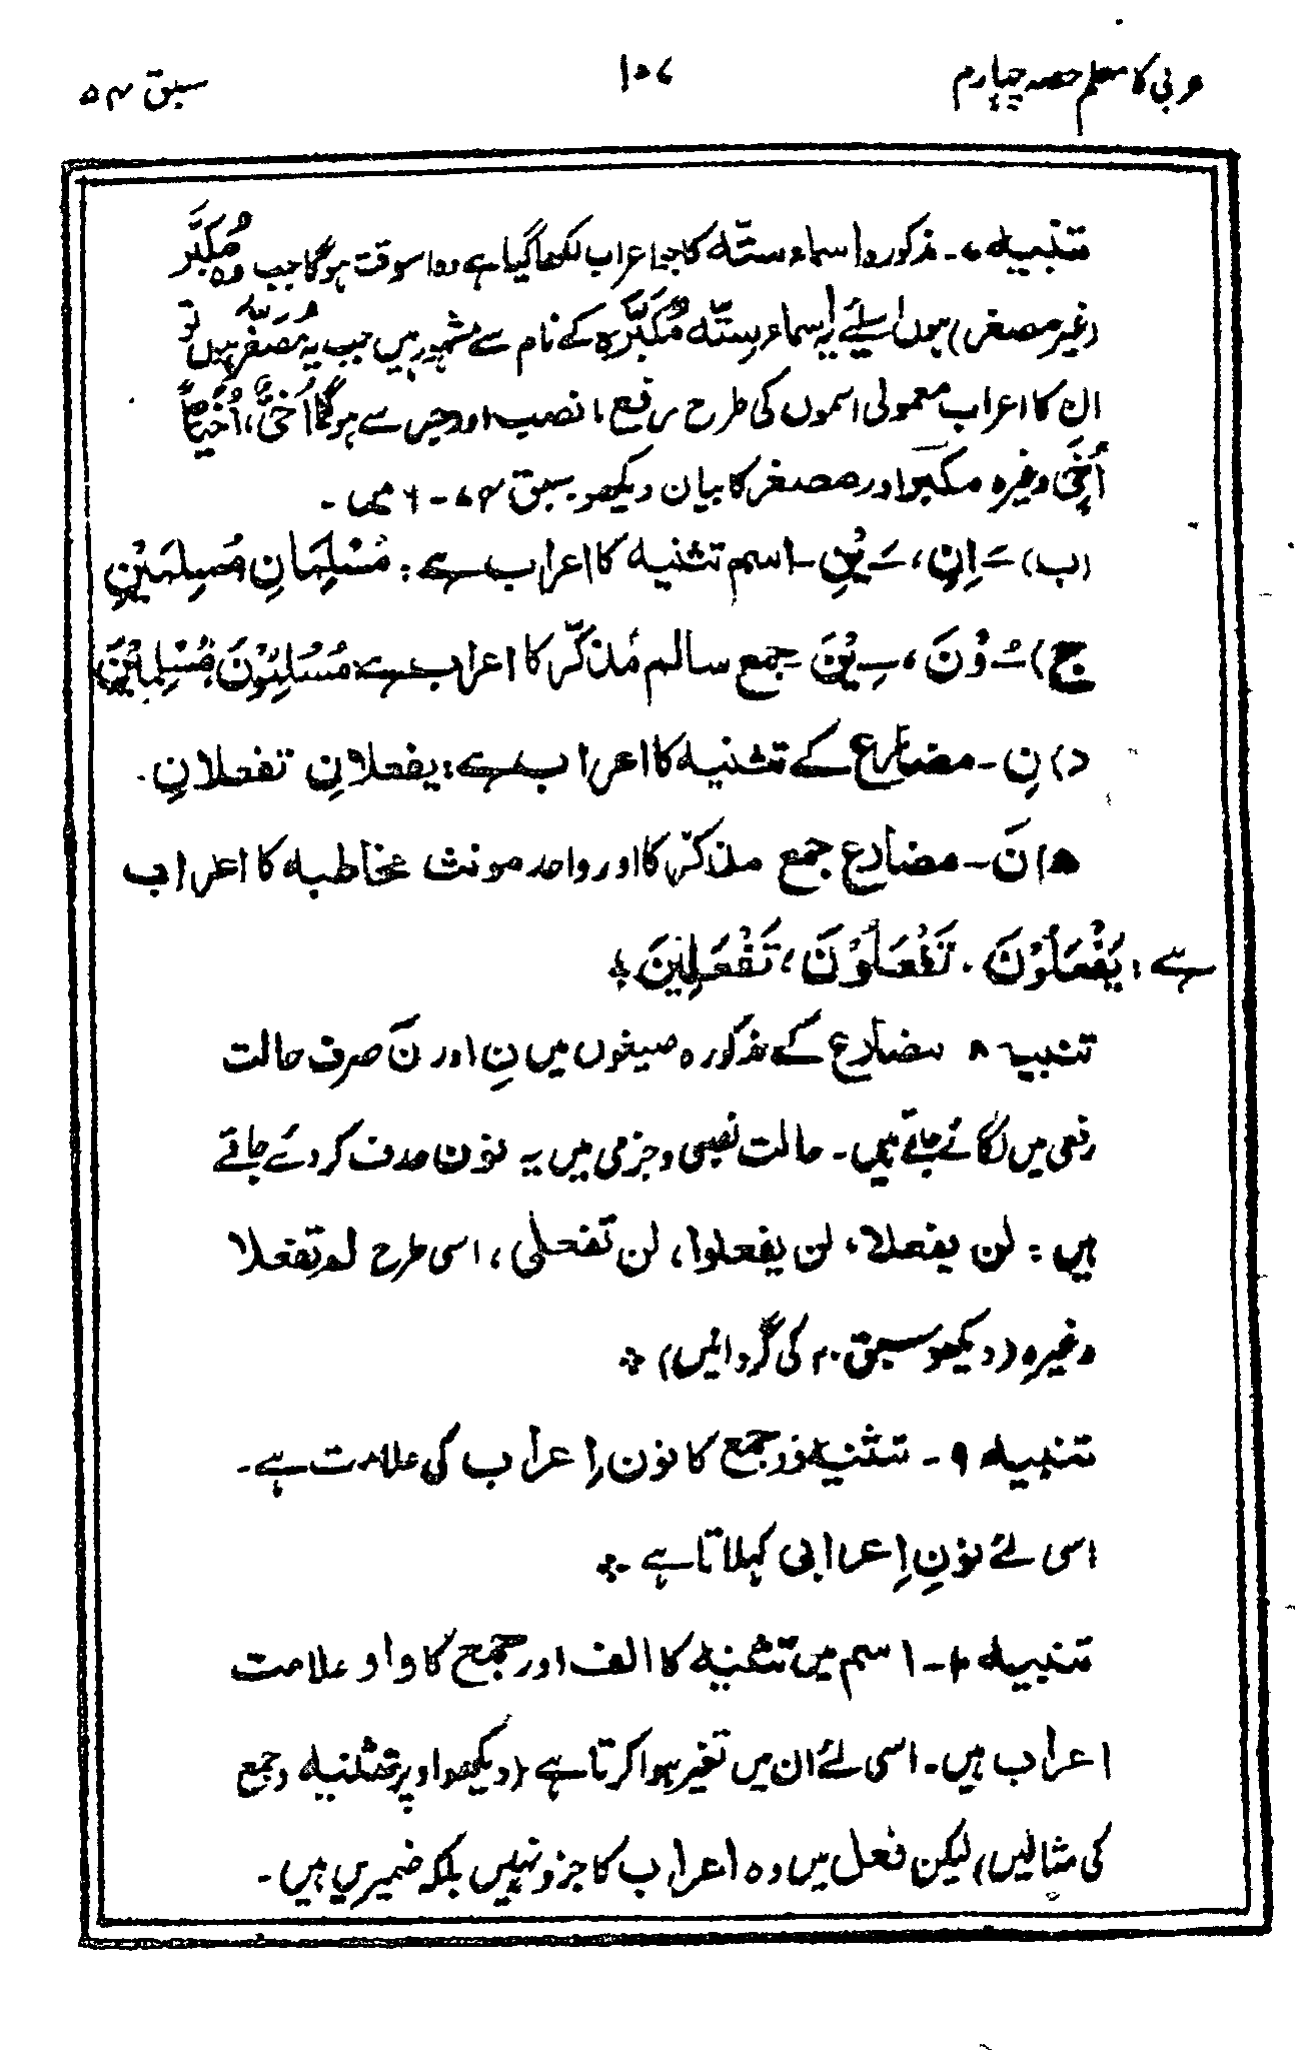 عربی کا معلم حصہ چہارم ۱۵۷ سبق ۵۴
تنبیہ ۷۔ مذکورہ اسماء ستّہ کا جو اعراب لکھا گیا ہے وہ اسوقت ہوگا جب وہ مُکبَّر
(غیر مصغر) ہوں اسلئے یہ اسماء ستّہ مُکَبَّرہ کے نام سے مشہور ہیں جب یہ مُصَغَّر ہوں تو
ان کا اعراب معمولی اسموں کی طرح رفع، نصب اور جر سے ہوگا اُخَیٌّ، اُخَیًّا
اُخَیٍّ وغیرہ مکبر اور مصغر کا بیان دیکھو سبق ۷۴-۶ میں۔
(ب) ــَـ انِ، ــَـ یْنِ ــ اسم تثنیہ کا اعراب ہے: مُسْلِمَانِ مُسلِمَیْنِ
ج) ــُـ وْنَ، ــِـ یْنَ جمع سالم مُذکَّر کا اعراب ہے: مُسْلِمُوْنَ مُسْلِمِیْنَ
د) نِ ــ مضارع کے تثنیہ کا اعراب ہے: یفعلانِ تفعلانِ۔
ھ) نَ ــ مضارع جمع مذکر کا اور واحد مونث مخاطبہ کا اعراب
ہے: یَفْعَلُوْنَ۔ تَفْعَلُوْنَ، تَفْعَلِیْنَ؛
تنبیہ ۸ مضارع کے مذکورہ صیغوں میں نِ اور نَ صرف حالت
رفعی میں لگائے جاتے ہیں۔ حالت نصبی و جزمی میں یہ نون حذف کردئے جاتے
ہیں: لن یفعلا، لن یفعلوا، لن تفعلی، اسی طرح لم تفعلا
وغیرہ (دیکھو سبق ۲۰ کی گردانیں) ؞
تنبیہ ۹ ۔ تثنیہ اور جمع کا نون اِعراب کی علامت ہے۔
اسی لئے نونِ اِعرابی کہلاتا ہے ؞
تنبیہ ۱۰۔ اسم میں تثنیہ کا الف اور جمع کا واو علامت
اعراب ہیں۔ اسی لئے ان میں تغیر ہوا کرتا ہے (دیکھو اوپر تثنیہ و جمع
کی مثالیں) لیکن فعل میں وہ اعراب کا جزو نہیں بلکہ ضمیریں ہیں۔